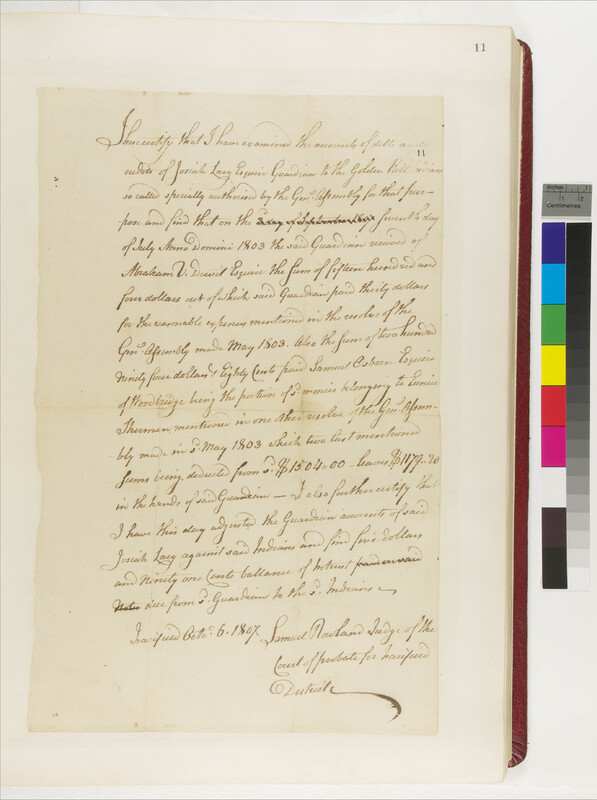 11
I hereby certify that I have examined the accounts of debts and
11
credits of Josiah Lacy Esquire Guardian to the Golden Hill Indians
so called specially authorised by the Genl. Assembly for that pur-
pose and find that on the 7th day
of July Anno Domini 1803 the said Guardian received of
Abraham V. Dewit Esquire the sum of fifteen hundred and
four dollars out of which said Guardian paid thirty dollars
for the reasonable expences mentioned in the resolve of the
Genl. Assembly made May 1803. Also the sum of two hundred
Ninety four dollars & Eighty Cents paid Samuel Osborn Esquire
of Woodbridge being the portion of sd. monies belonging to Eunice
Sherman mentioned in one other resolve of the Genl. Assem-
-bly made in sd. May 1803 which two last mentioned
sums being deducted from sd. $1504-00 leaves $1179-20
in the hands of said Guardian — I also further certify that
I have this day adjusted the Guardian accounts of said
Josiah Lacy against said Indians and find five dollars
and Ninety one Cents ballance of Intrest
due from sd. Guardian to the sd. Indians —
Fairfield Octr. 6. 1807. Samuel Rowland Judge of the
Court of probate for Fairfield
District